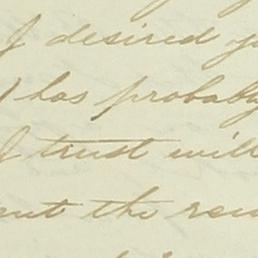 I desired
has probably
I trust will
the